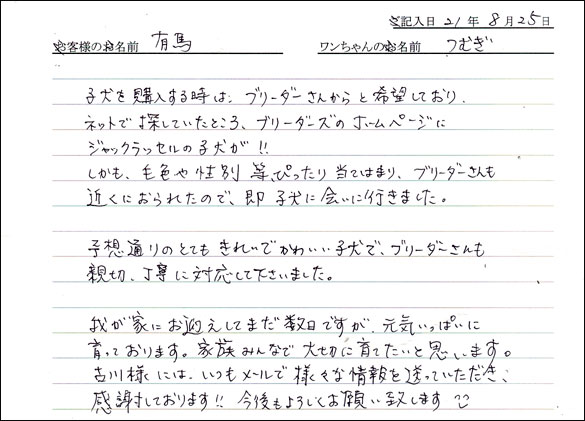 ご記入日 21年 8月25日
お客様のお名前 有馬 ワンちゃんのお名前 つむぎ
子犬を購入する時は、ブリーダーさんからと希望しており、
ネットで探していたところ、ブリーダーズのホームページに
ジャックラッセルの子犬が!!
しかも、毛色や性別等、ぴったり当てはまり、ブリーダーさんも
近くにおられたので、即子犬に会いに行きました。
予想通りのとてもきれいでかわいい子犬で、ブリーダーさんも
親切、丁寧に対応して下さいました。
我が家にお迎えしてまだ数日ですが、元気いっぱいに
育っております。家族みんなで大切に育てたいと思います。
古川様には、いつもメールで様々な情報を送っていただき、
感謝しております!! 今後もよろしくお願い致します